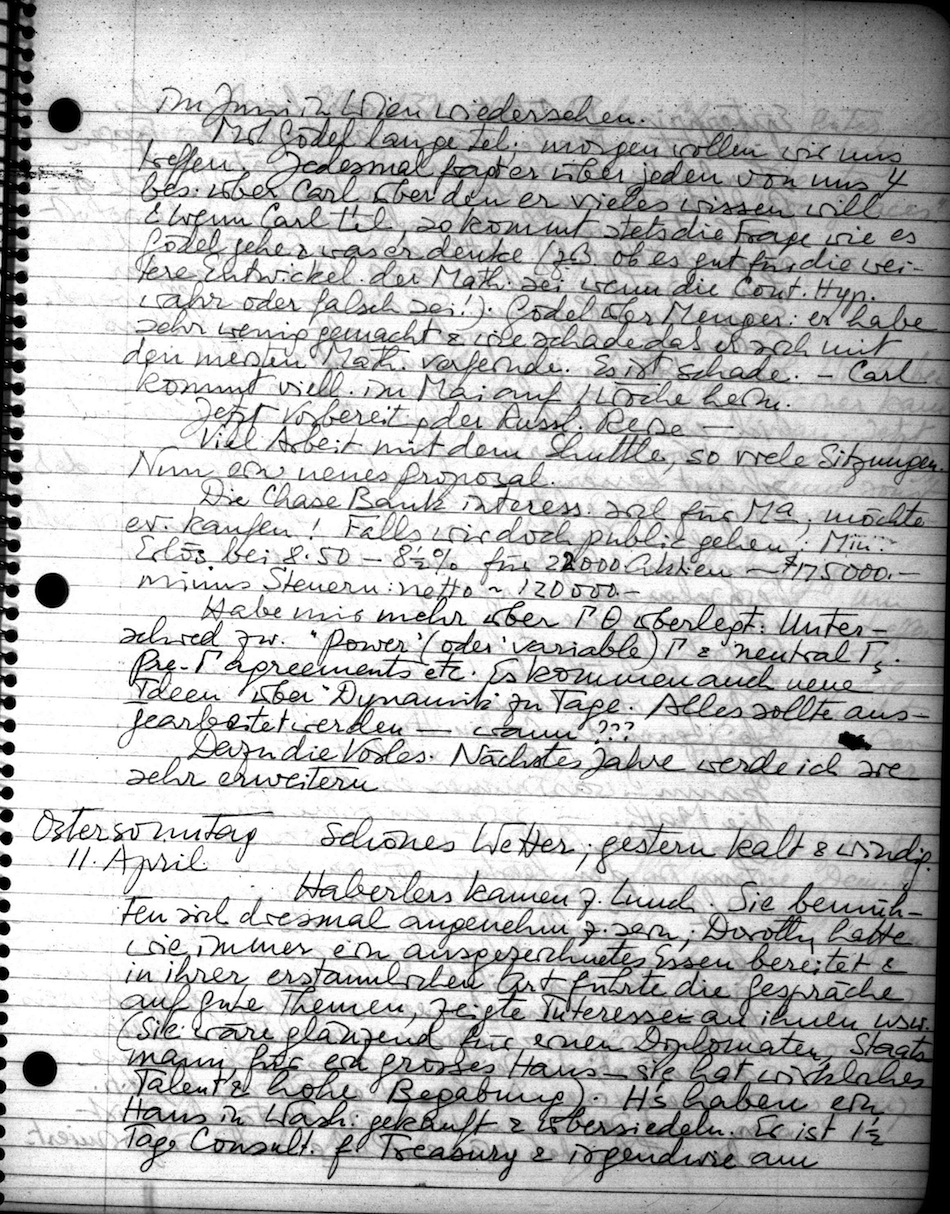 im Juni in Wien wiedersehen.
Mit Gödel lange tel.; morgen wollen wir uns
treffen. Jedesmal fragt er über jeden von uns 4
bes. über Carl über den er vieles wissen will
& wenn Carl tel, so kommt stets die Frage wie es
Gödel gehe & was er denke (zB ob es gut für die wei-
tere Entwickel. der Math. sei wenn die Cont. Hyp.
wahr oder falsch sei!). Gödel über Menger: er habe
sehr wenig gemacht & wie schade das er sich mit
den meisten Math. verfeinde. Es ist schade. – Carl
kommt viell. im Mai auf 1 Woche heim.
Jetzt Vorbereit. der Russl. Reise —
Viel Arbeit mit dem Shuttle, so viele Sitzungen
Nun ein neues Proposal.
Die Chase Bank interess. sich für Ma, möchte
ev. kaufen! Falls wir doch public gehen: Min.
Erlös bei 8.50 – 8½% für 22000 Aktien ~ $175000.–
minus Steuern: netto ~ 120000.–
Habe mir mehr über Γ Θ überlegt: Unter-
schied zw. "power" (oder "variable) Γ & "neutral Γ".
Pre-Γ agreements etc. Es kommen auch neue
Ideen über "Dynamik" zu Tage. Alles sollte aus-
gearbeitet werden — wann???
Dazu die Vorles. Nächstes Jahre werde ich sie
sehr erweitern
Ostersonntag Schönes Wetter; gestern kalt & windig.
11. April.
Haberlers kamen z. Lunch. Sie bemüh-
ten sich diesmal angenehm z. sein; Dorothy hatte
wie immer ein ausgezeichnetes Essen bereitet &
in ihrer erstaunlichen Art führte die Gespräche
auf gute Themen, zeigte Interesse an ihnen usw.
(Sie wäre glänzend für einen Diplomaten, Staats
mann, für ein grosses Haus – sie hat wirkliches
Talent & hohe Begabung). H's haben ein
Haus in Wash. gekauft & übersiedeln. Er ist 1½
Tage Consult. f Treasury & irgendwie am